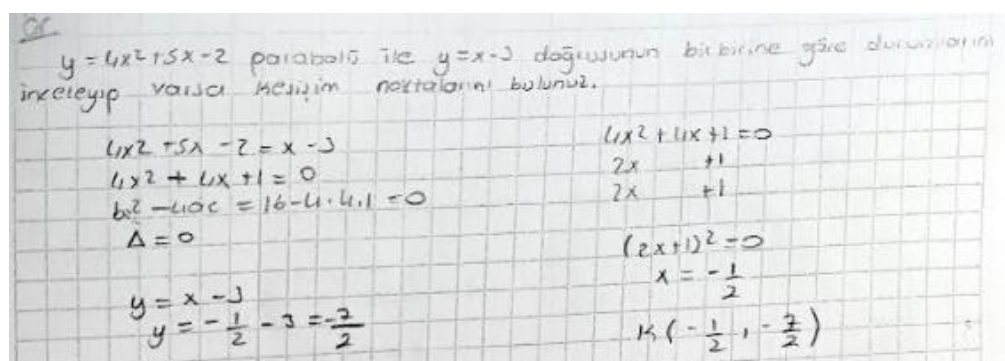 Ör
y = 4x2+5x-2 parabolü ile y=x-3 doğrusunun birbirine göre durumlarını
inceleyip varsa kesişim noktalarını bulunuz.
4x2 +5x -2 = x -3
4x2 + 4x +1 = 0
b2 -4ac = 16-4.4.1 =0
Δ = 0
y = x -3
y = - 1/2 - 3 = -7/2
4x2 + 4x +1 =0
2x +1
2x +1
(2x+1)2 =0
x = - 1/2
K ( - 1/2 , - 7/2 )